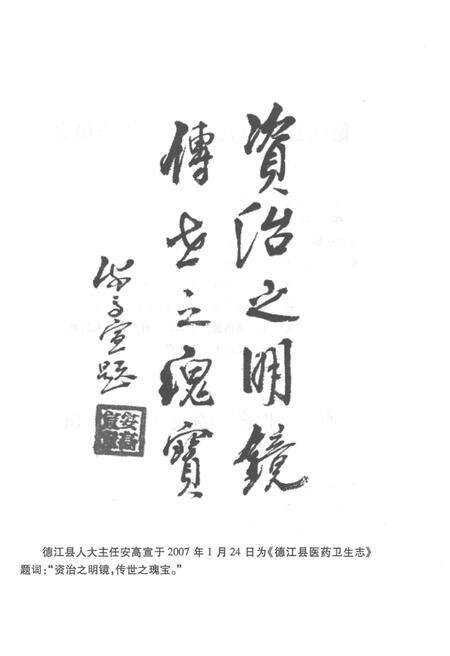 資治之明鏡
傳世之瑰寶
安高宣題
德江县人大主任安高宣于2007年1月24日为《德江县医药卫生志》
题词:“资治之明镜,传世之瑰宝。”